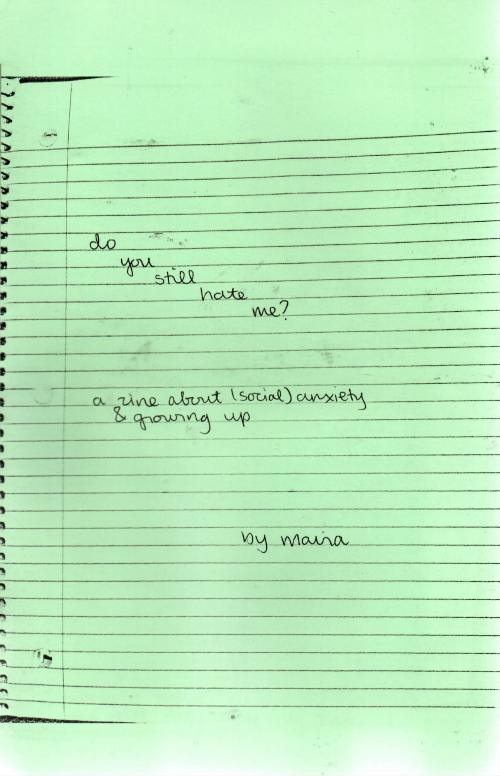 do
you
still
hate
me?
a zine about (social) anxiety
& growing up
by maira